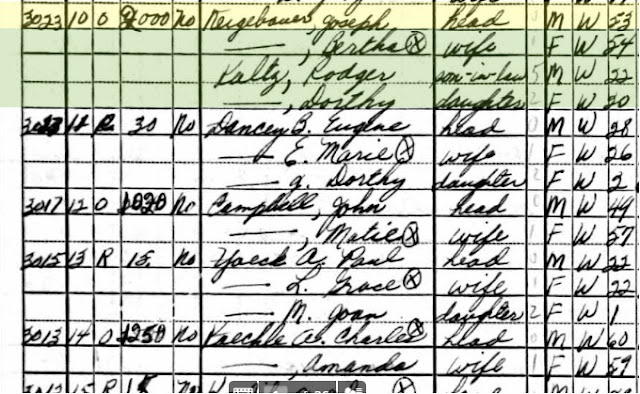 3023 10 O 2000 No Keigebauer, Joseph head 0 M W 53
—, Bertha ⓧ wife 1 F W 54
Kaltz, Rodger son-in-law 5 M W 22
—, Dorthy daughter 2 F W 20
11 R 30 No Dancey B. Eugene head 0 M W 28
— E. Marie ⓧ wife 1 F W 26
— g. Dorthy daughter 2 F W 2
3017 12 O No Campbell, John head 0 M W 49
—, Matie ⓧ wife 1 F W 57
3015 13 R 15 No Yoeck A. Paul head 0 M W 22
— L. Grace ⓧ wife 1 F W 22
— M. Joan daughter 2 F W 1
3013 14 O 1250 No Kaechle A. Charles ⓧ head 0 M W 60
—, Amanda wife 1 F W 59
15 R